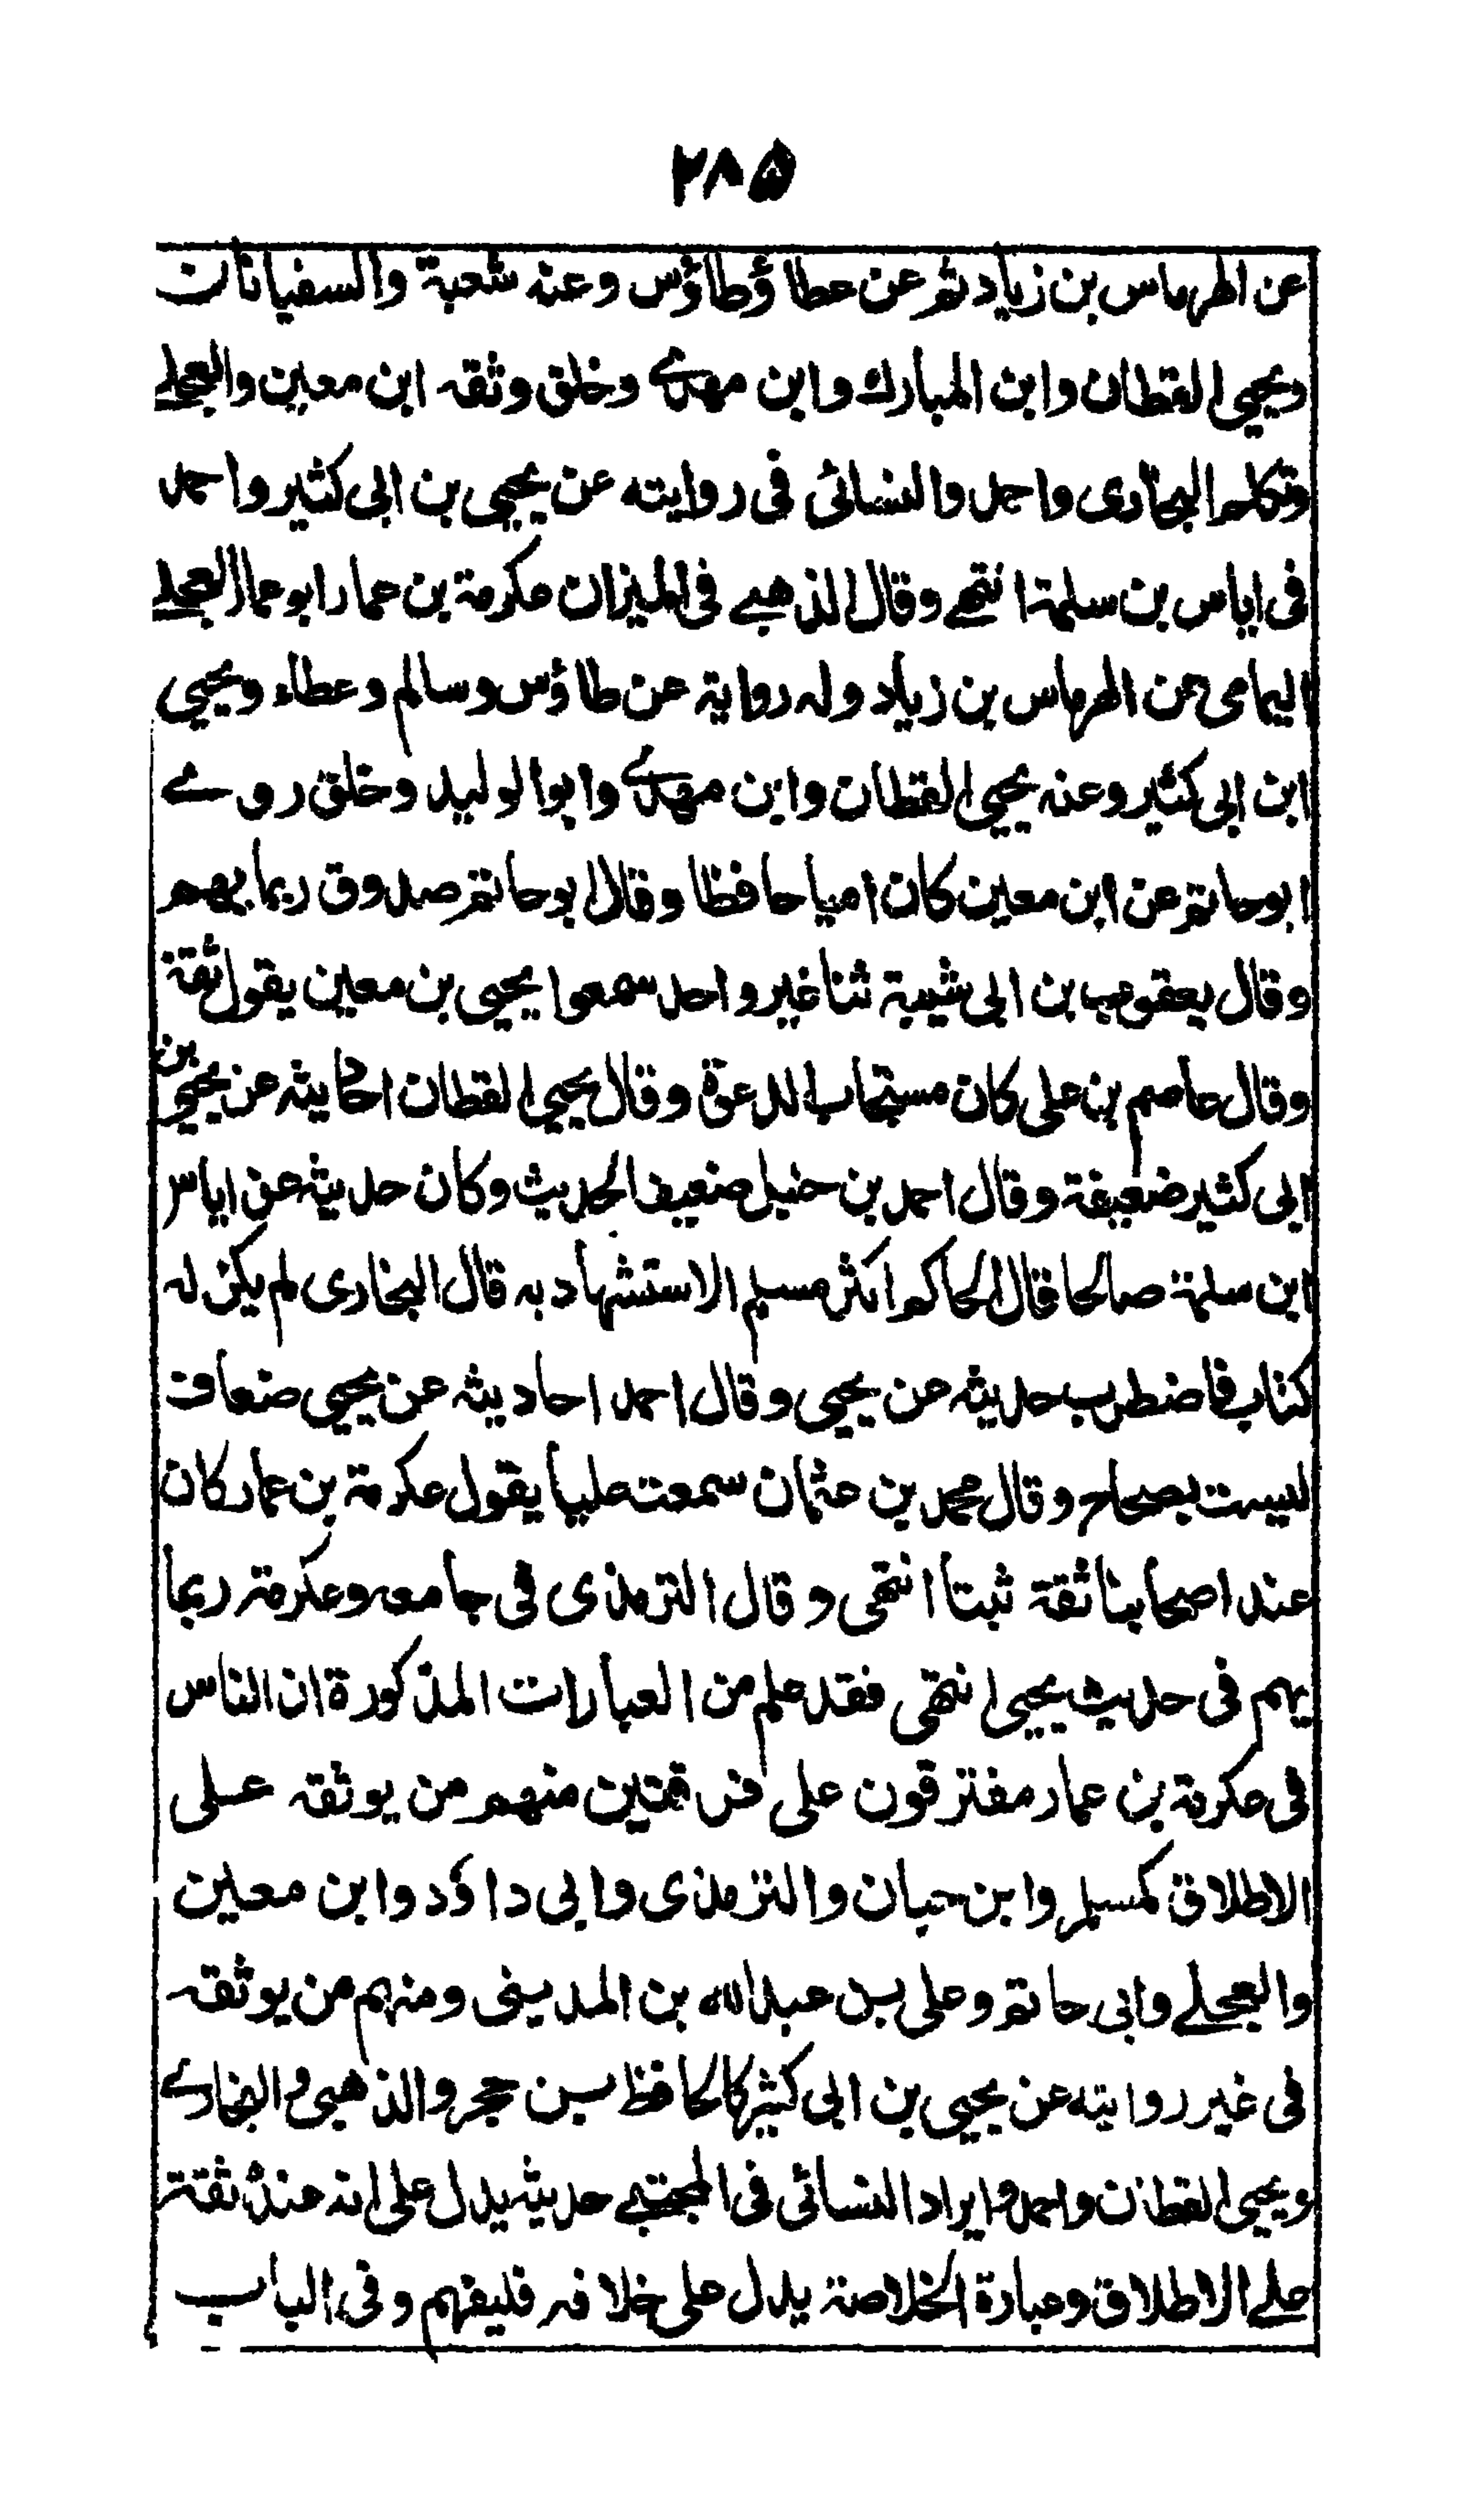 ۲۸۵
عن الهرماس بن زياد ثم عن عطا ؤطاؤس وعنه شعبة والسفيانان
ويحيى القطان وابن المبارك وابن مهدے وخلق وثقه ابن معين والعجلے
وتكلم البخاري واحمد والنسائى فى روايته عن يحيى بن ابى كثير واحمد
فى اياس بن سلمة انتهے وقال الذهبے فى الميزان عكرمة بن عمار ابو عمار العجلے
اليمامى عن الهرماس بن زياد وله رواية عن طاؤس وسالم وعطاء ويحيى
ابن ابى كثير وعنه يحيى القطان وابن مهدے وابو الوليد وخلق روے
ابو حاتم عن ابن معين كان اميا حافظا وقال ابو حاتم صدوق ربما يهم
وقال يعقوب بن ابى شيبة ثنا غير واحد سمعوا يحيى بن معين يقول ثقة
وقال عاصم بن على كان مستجاب الدعوة وقال يحيى القطان احاديثه عن يحيى بن
ابى كثير ضعيفة وقال احمد بن حنبل ضعيف الحديث وكان حديثه عن اياس
ابن سلمة صالحا قال الحاكم اكثر مسلم الاستشهاد به قال البخارى لم يكن له
كتاب فاضطرب حديثه عن يحيى وقال احمد احاديثه عن يحيى ضعاف
ليست بصحاح وقال محمد بن عثمان سمعت عليا يقول عكرمة بن عمار كان
عند اصحابنا ثقة ثبتا انتهى وقال الترمذى فى جامعه وعكرمة ربما
يهم فى حديث يحيى انتهى فقد علم من العبارات المذكورة ان الناس
فى عكرمة بن عمار مفترقون على فرقتين منهم من يوثقه على
الاطلاق كمسلم وابن حبان والترمذى وابى داؤد وابن معين
والعجلے وابى حاتم وعلى بن عبد الله بن المدينى ومنهم من يوثقه
فى غير روايته عن يحيى بن ابى كثير كالحافظ بن حجر والذهبى والبخارے
ويحيى القطان واحمد وايراد النسائى فى المجتبے حديثه يدل على انه عنده ثقة
علے الاطلاق وعبارة الخلاصة يدل على خلافه فليفهم وفى الباب